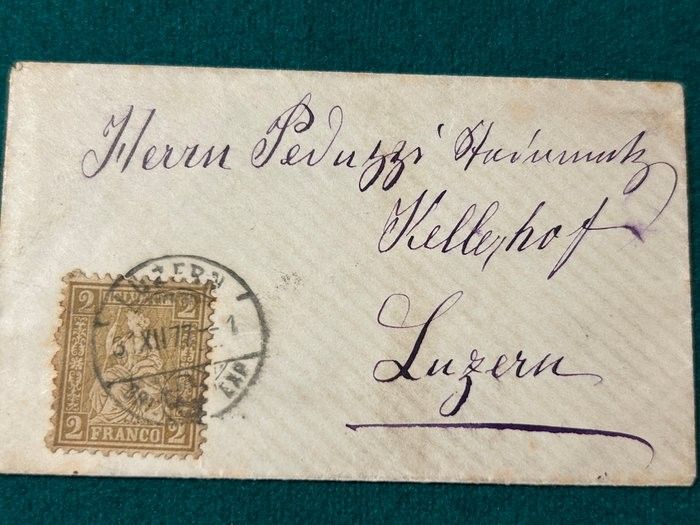 Herrn Peduzzi Steinmetz
Kellerhof
Luzern
LUZERN
31 XII 77 - 1
EXP
2 2
2 FRANCO 2